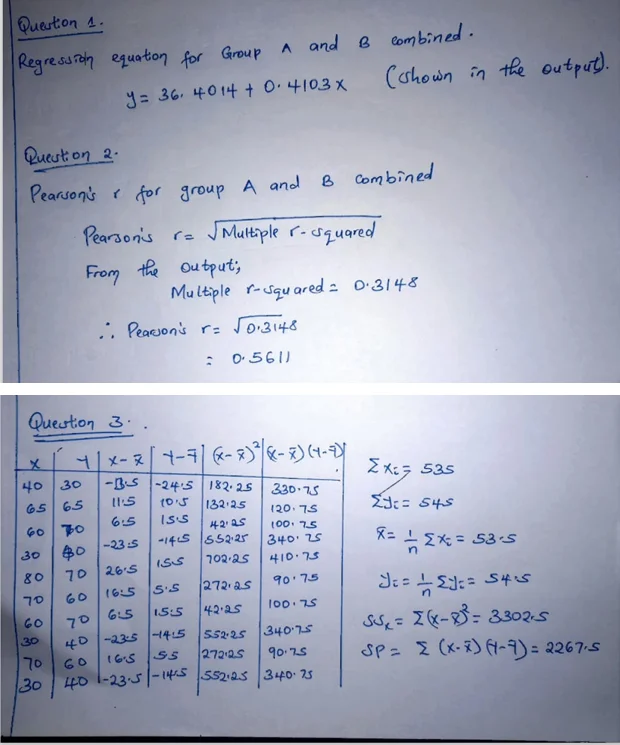 Question 1.
Regression equation for Group A and B combined.
y = 36.4014 + 0.4103x (shown in the output).
Question 2.
Pearson's r for group A and B combined
Pearson's r = √Multiple r-squared
From the output;
Multiple r-squared = 0.3148
∴ Pearson's r = √0.3148
= 0.5611
Question 3.
x | Y | x - x̄ | Y - Ȳ | (x - x̄)² | (x - x̄)(Y - Ȳ)
40 30 -13.5 -24.5 182.25 330.75
65 65 11.5 10.5 132.25 120.75
60 70 6.5 15.5 42.25 100.75
30 40 -23.5 -14.5 552.25 340.75
80 70 26.5 15.5 702.25 410.75
70 60 16.5 5.5 272.25 90.75
60 70 6.5 15.5 42.25 100.75
30 40 -23.5 -14.5 552.25 340.75
70 60 16.5 5.5 272.25 90.75
30 40 -23.5 -14.5 552.25 340.75
Σxᵢ = 535
Σyᵢ = 545
x̄ = 1/n Σxᵢ = 53.5
yᵢ = 1/n Σyᵢ = 54.5
SSₓ = Σ(x - x̄)² = 3302.5
SP = Σ (x - x̄)(Y - Ȳ) = 2267.5